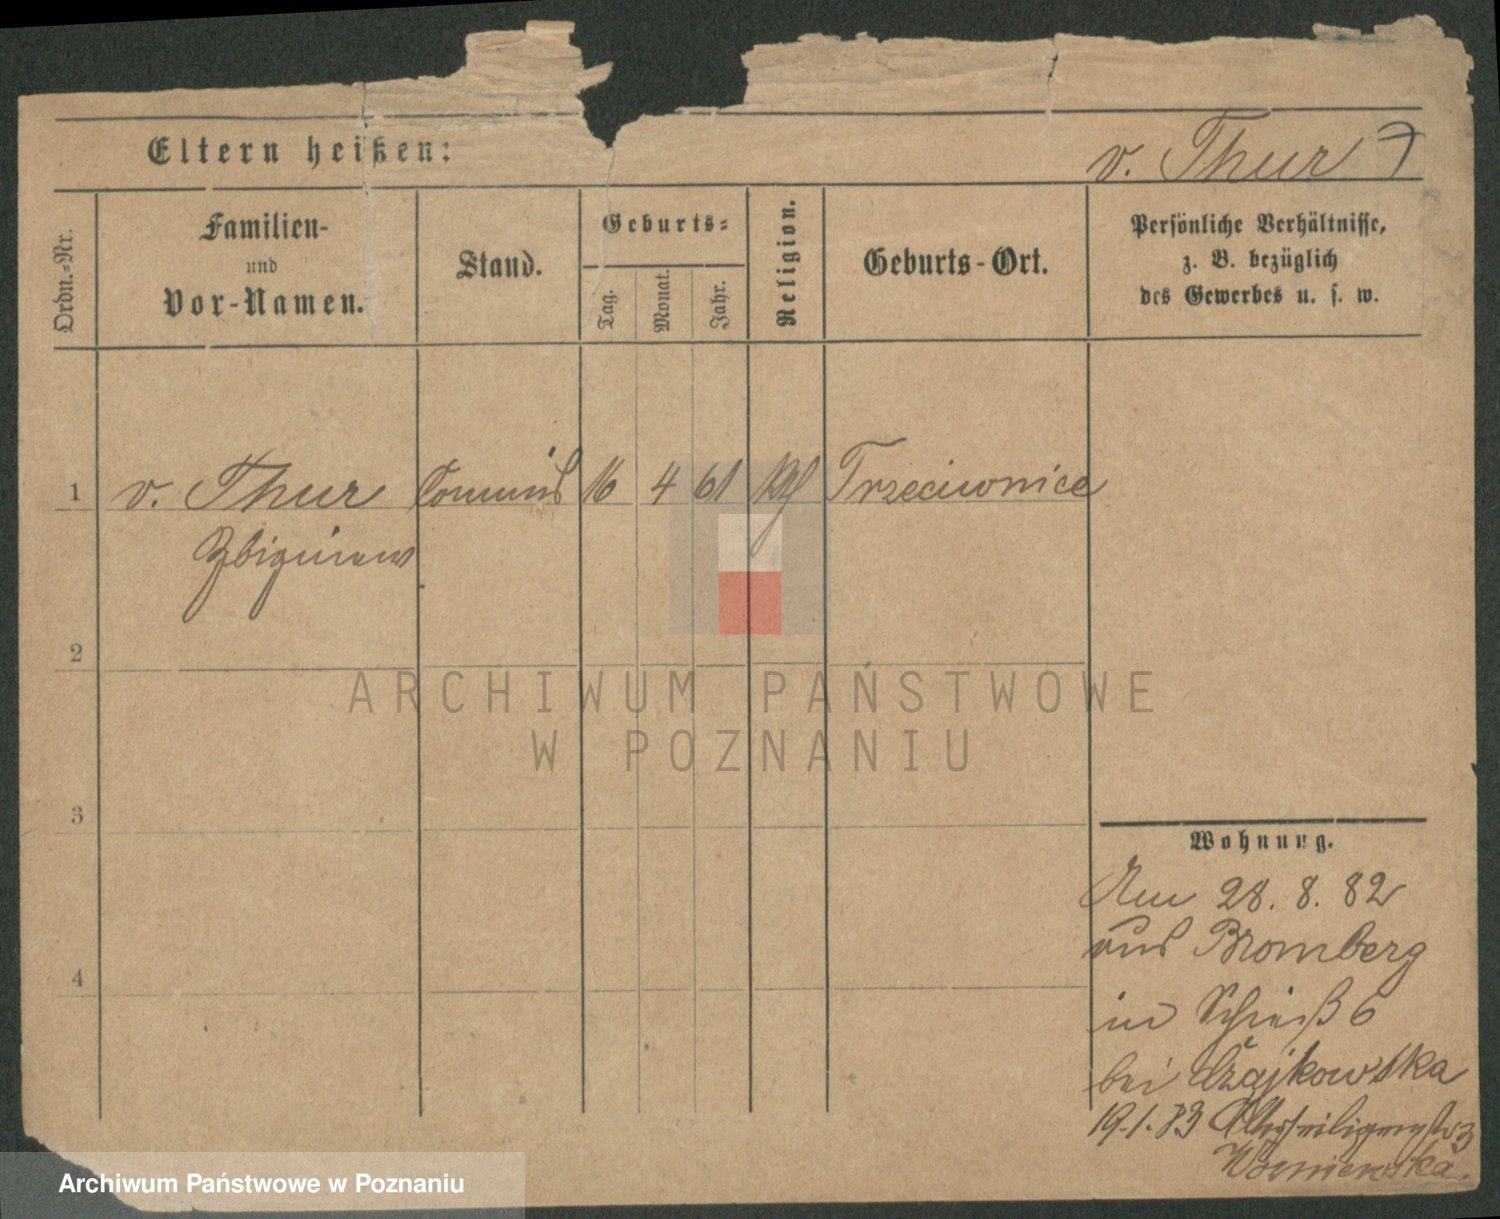 Eltern heißen:
v. Thur
Ordn.-Nr.
Familien-
und
Vor-Namen.
Stand.
Geburts-
Tag.
Monat.
Jahr.
Religion.
Geburts-Ort.
Persönliche Verhältnisse,
z. B. bezüglich
des Gewerbes u. s. w.
1 v. Thur Commis 16 4 61 kth Trzeciewnice
Zbigniew
2
3
4
Wohnung.
Am 28. 8. 82
aus Bromberg
in Schieß 6
bei Czajkowska
19.1.83 Allerheiligenstr 3
ARCHIWUM PAŃSTWOWE
W POZNANIU
Archiwum Państwowe w Poznaniu